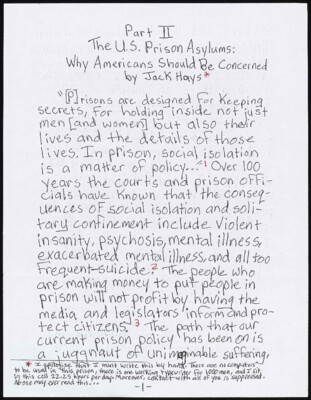 Part II
The U.S. Prison Asylums:
Why Americans Should Be Concerned
by Jack Hays*
"[P]risons are designed for keeping
secrets, for holding inside not just
men [and women] but also their
lives and the details of those
lives. In prison, social isolation
is a matter of policy..."1 Over 100
years the courts and prison offi-
cials have known that the conseq-
uences of social isolation and soli-
tary confinement include violent
insanity, psychosis, mental illness,
exacerbated mental illness, and all too
frequent suicide.2 The people who
are making money to put people in
prison will not profit by having the
media and legislators inform and pro-
tect citizens.3 The path that our
current prison policy has been on is
a juggnaut of unimaginable suffering,
* I apologize that I must write this by hand. There are no computers
to be used in this prison, there is one working typewriter for 1,000 men, and I sit
in this cell 22-24 hours per day. Moreover, contact with all of you is suppressed.
No one may ever read this...
-1-